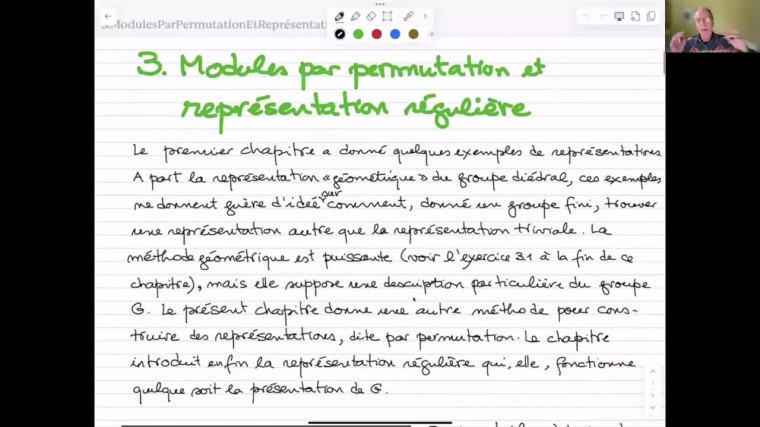 3.ModulesParPermutationEtReprésentat
3. Modules par permutation et
représentation régulière
Le premier chapitre a donné quelques exemples de représentations.
A part la représentation «géométrique» du groupe diédral, ces exemples
ne donnent guère d'idée sur comment, donné un groupe fini, trouver
une représentation autre que la représentation triviale. La
méthode géométrique est puissante (voir l'exercice 3.1 à la fin de ce
chapitre), mais elle suppose une description particulière du groupe
G. Le présent chapitre donne une autre méthode pour cons-
truire des représentations, dite par permutation. Le chapitre
introduit enfin la représentation régulière qui, elle, fonctionne
quelque soit la présentation de G.